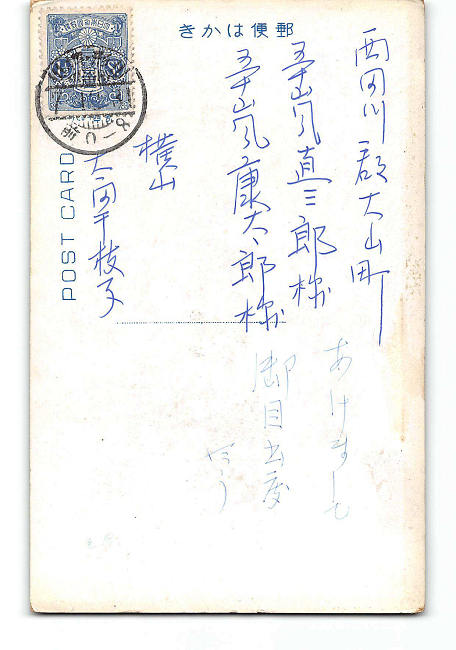 郵便はかき
西田川郡大山町
五十嵐直三郎様
五十嵐康太郎様
横山
千枝子
POST CARD
あけまして
御目出度